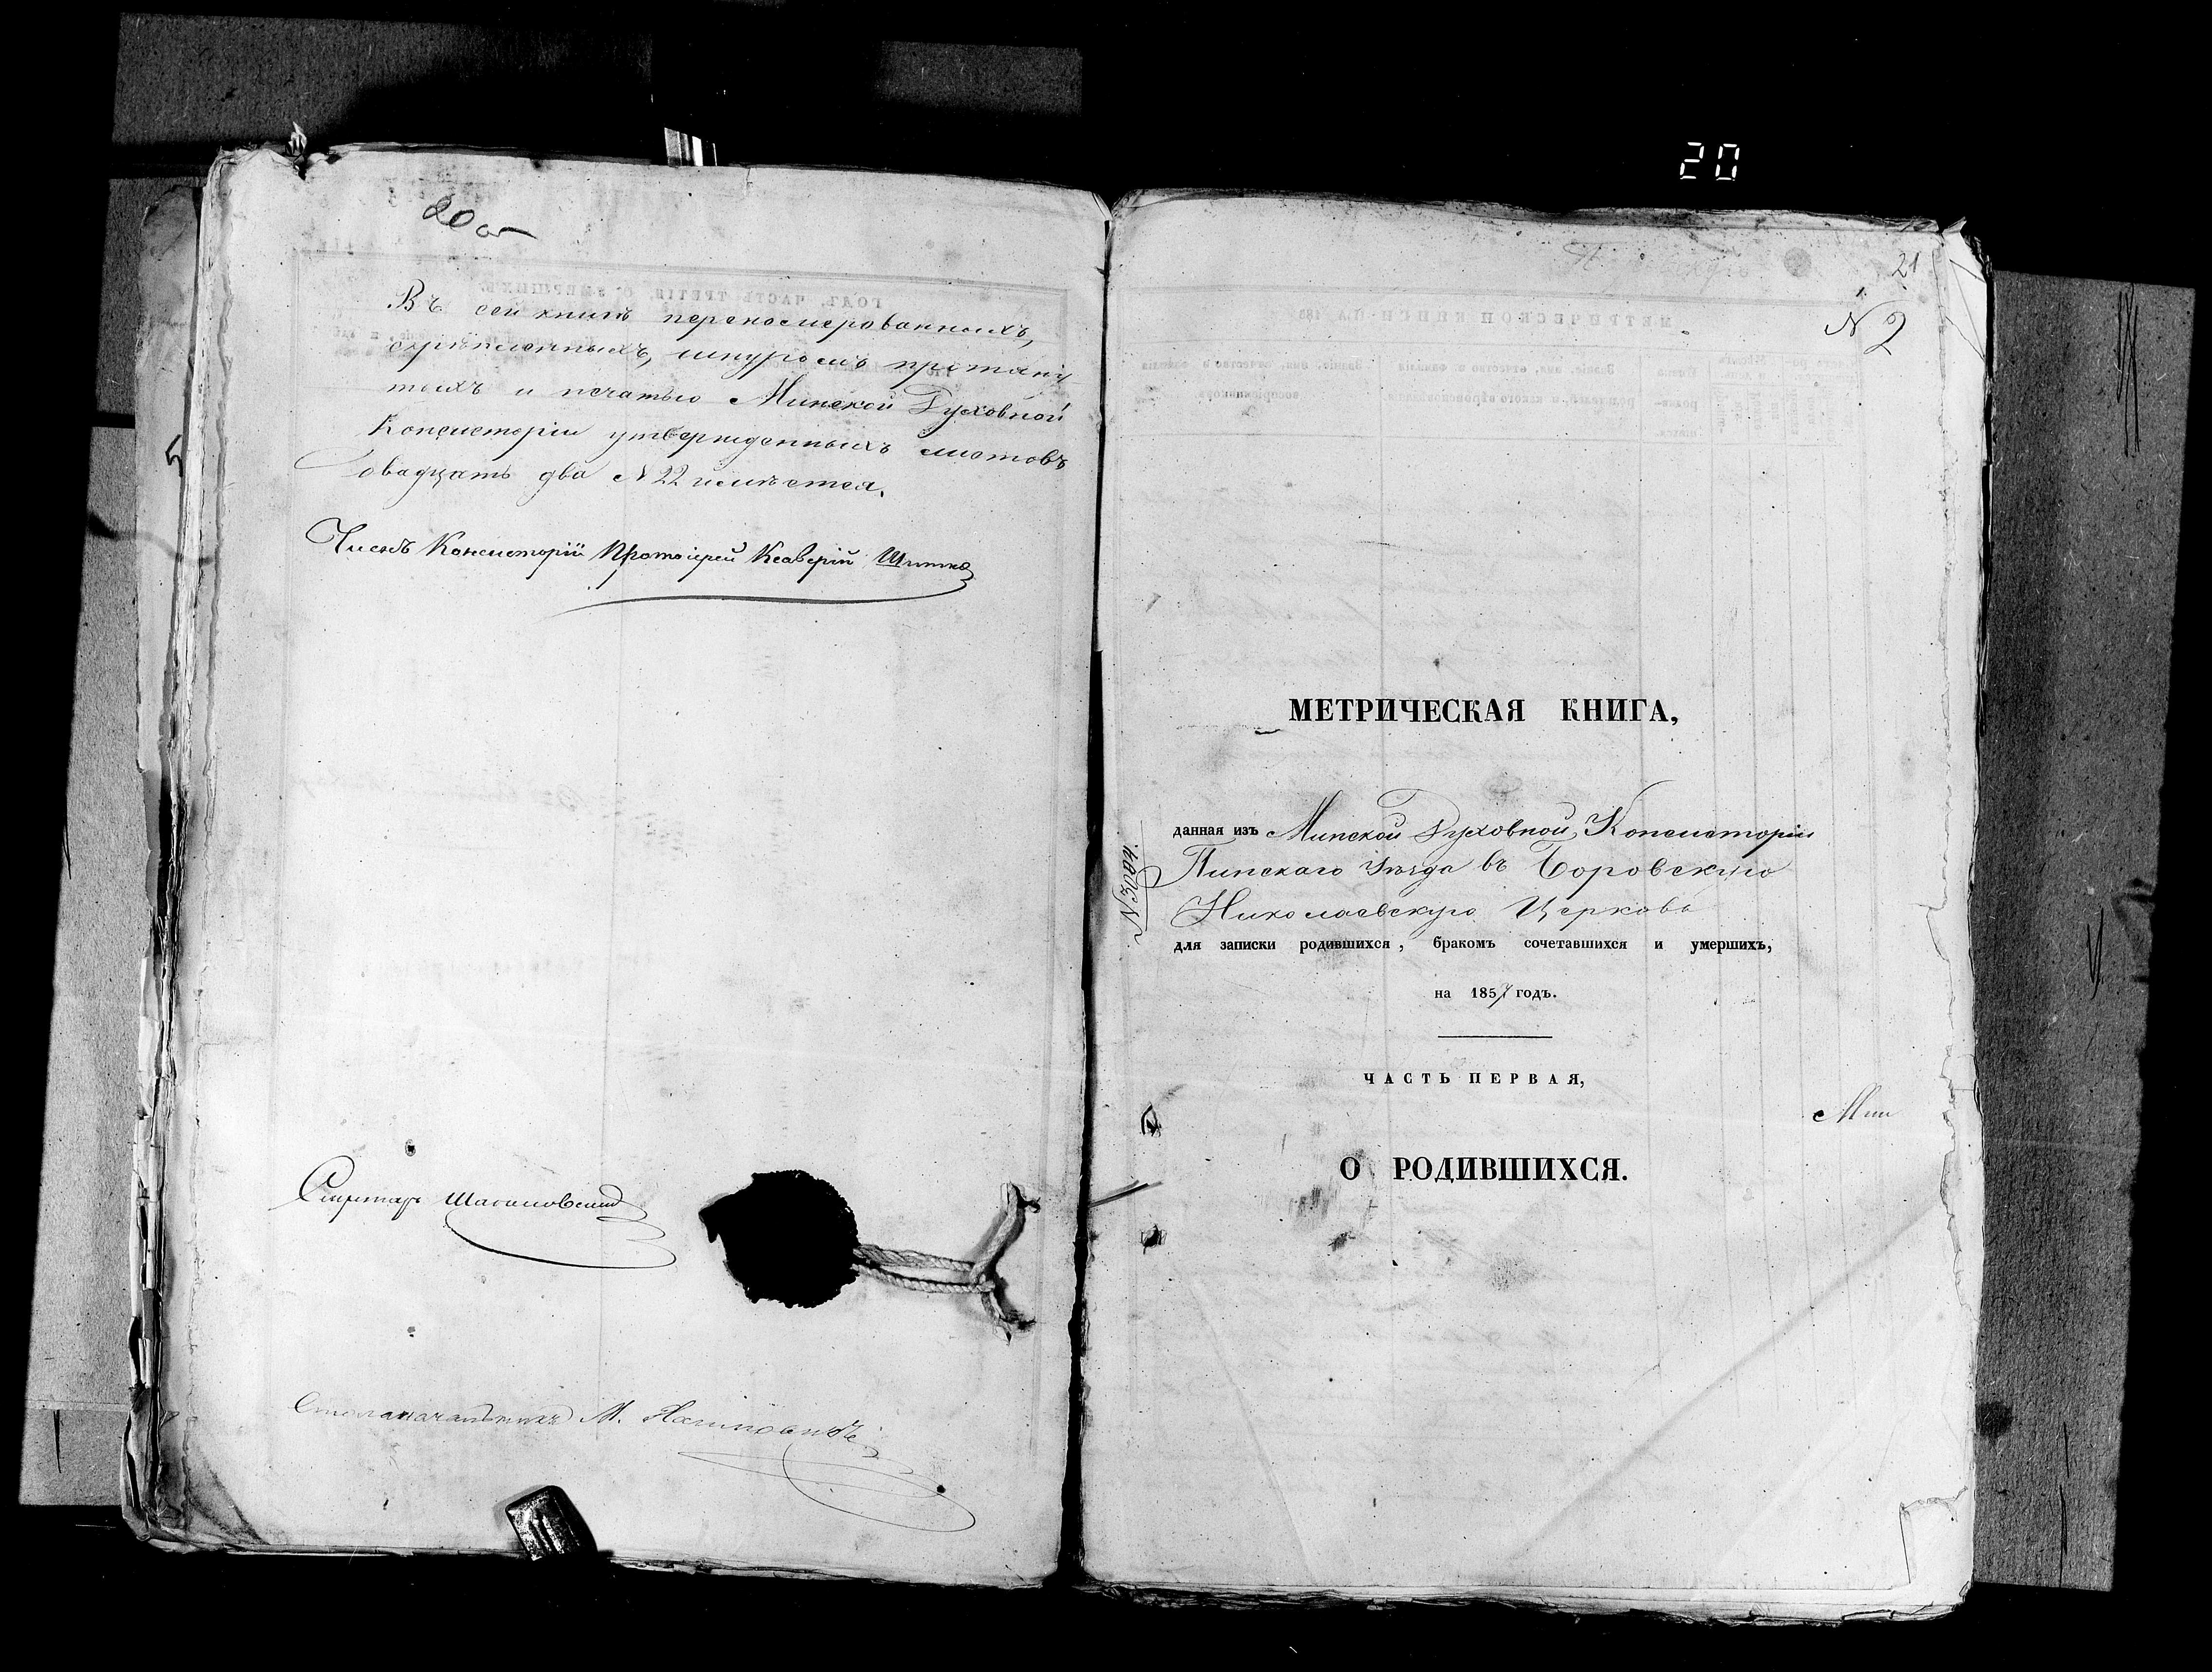 20
20 об
Въ сей книгѣ перенумерованныхъ,
скрѣпленныхъ, шнуромъ протяну
тыхъ и печатью Минской Духовной
Консисторіи утвержденныхъ листовъ
двадцать два N 22 имѣется.
Членъ Консисторіи Протоіерей Ксаверій
Секретарь
Столоначальникъ М.
21
N 2
МЕТРИЧЕСКАЯ КНИГА,
данная изъ Минской Духовной Консисторіи
Пинскаго Уѣзда въ Боровскую
Николаевскую Церковь
для записки родившихся, бракомъ сочетавшихся и умершихъ,
на 1857 годъ.
ЧАСТЬ ПЕРВАЯ,
Мин
О РОДИВШИХСЯ.